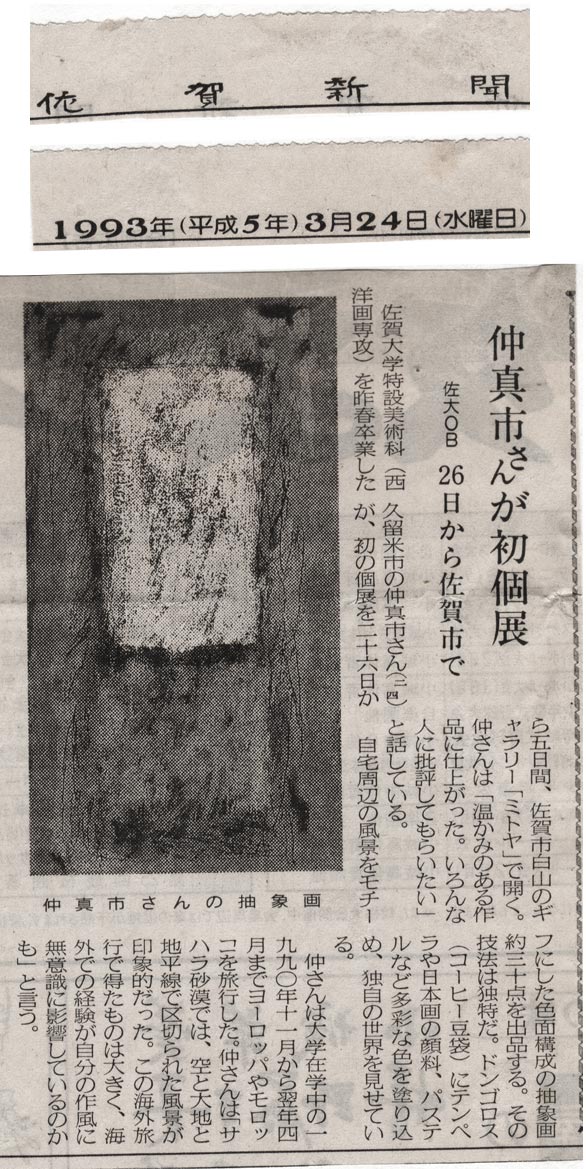 佐賀新聞
1993年(平成5年)3月24日(水曜日)
仲真市さんが初個展
佐大OB 26日から佐賀市で
佐賀大学特設美術科(西
洋画専攻)を昨春卒業した
久留米市の仲真市さん(二四)
が、初の個展を二十六日か
ら五日間、佐賀市白山のギ
ャラリー「ミトヤ」で開く。
仲さんは「温かみのある作
品に仕上がった。いろんな
人に批評してもらいたい」
と話している。
自宅周辺の風景をモチ
ーフにした色面構成の抽象画
約三十点を出品する。その
技法は独特だ。ドンゴロス
(コーヒー豆袋)にテンペ
ラや日本画の顔料、パステ
ルなど多彩な色を塗り込
め、独自の世界を見せてい
る。
仲さんは大学在学中の一
九九〇年十一月から翌年四
月までヨーロッパやモロッ
コを旅行した。仲さんは「サ
ハラ砂漠では、空と大地と
地平線で区切られた風景が
印象的だった。この海外旅
行で得たものは大きく、海
外での経験が自分の作風に
無意識に影響しているのか
も」と言う。
仲真市さんの抽象画